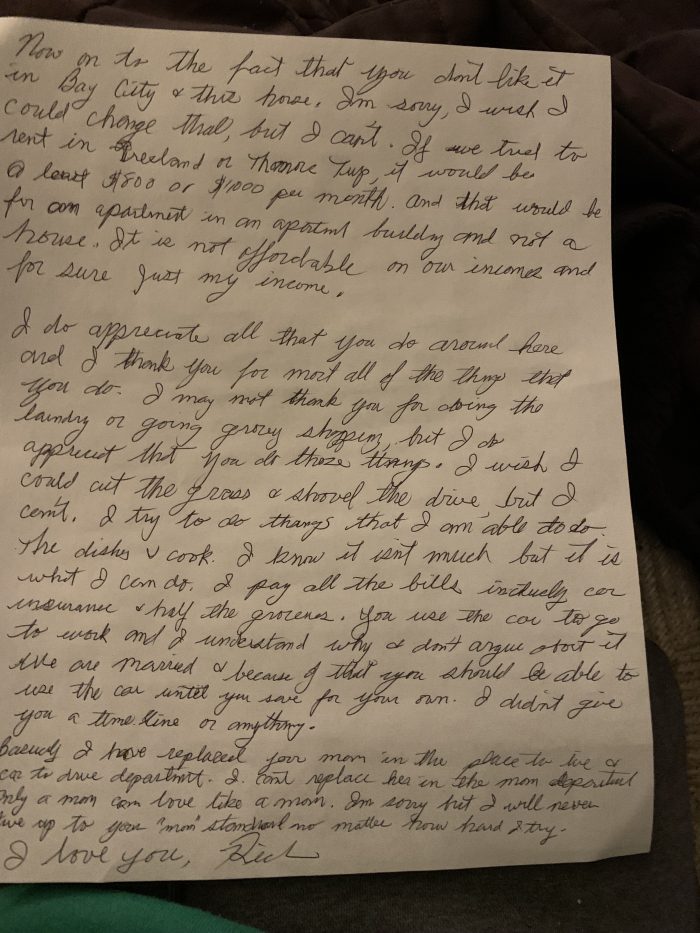 Now on to the fact that you don't like it
in Bay City & this house. I'm sorry, I wish I
could change that, but I can't. If we tried to
rent in Freeland or Thomas Twp, it would be
a least $800 or $1000 per month. And that would be
for an apartment in an apartment building and not a
house. It is not affordable on our incomes and
for sure just my income.
I do appreciate all that you do around here
and I thank you for most all of the things that
you do. I may not thank you for doing the
laundry or going grocery shopping, but I do
appreciate that you do those things. I wish I
could cut the grass & shovel the drive, but I
can't. I try to do things that I am able to do.
The dishes & cook. I know it isn't much but it is
what I can do. I pay all the bills, including car
insurance & half the groceries. You use the car to go
to work and I understand why & don't argue about it
We are married & because of that you should be able to
use the car until you save for your own. I didn't give
you a time line or anything.
Basically I have replaced your mom in the place to live &
car to drive department. I can't replace her in the mom department
only a mom can love like a mom. I'm sorry but I will never
live up to your "mom" standard no matter how hard I try.
I love you,